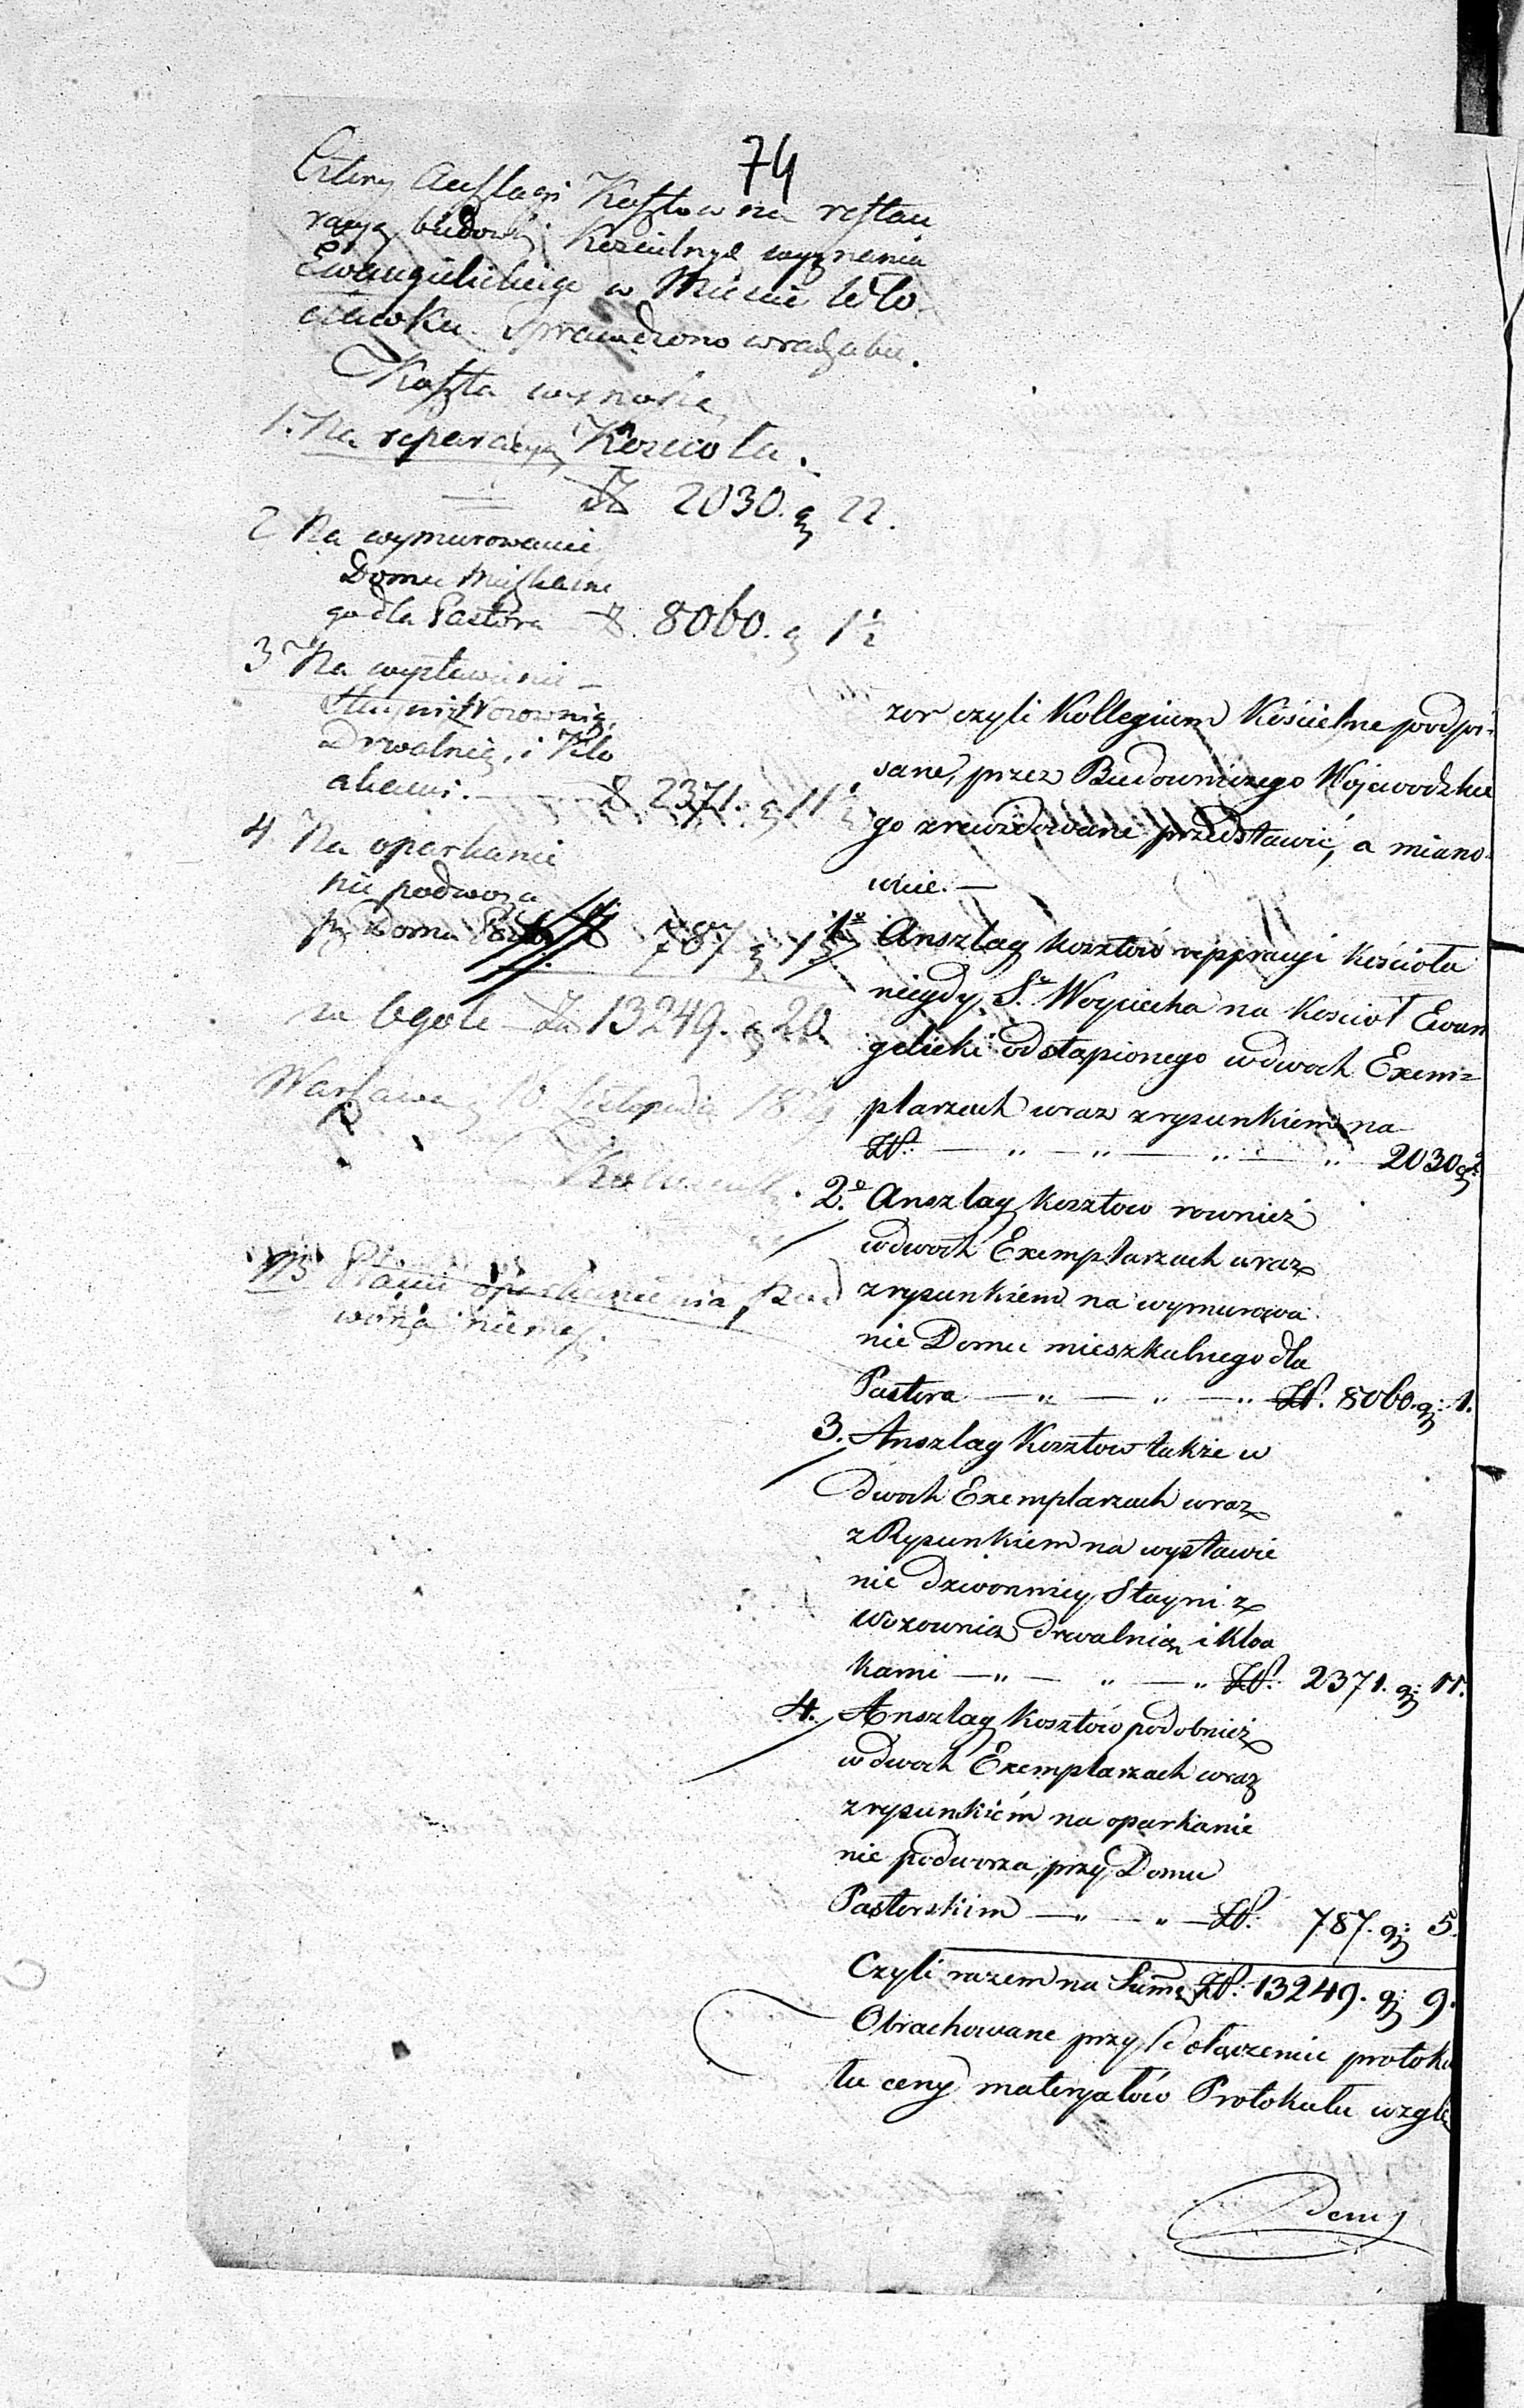 74
Cztery Anszlagi Kosztow na restau
racyą budowli Kościelnych wyznania
Ewangielickiego w Mieście Wło
cławku Sprawdzono wraz z abu.
Koszta wynoszą
1. Na reparacyą Kościoła.
Zł 2030. g 22.
2 Na wymurowanie
Domu Mieszkalne
go dla Pastora Zł. 8060. g 1½
3 Na wystawienie
Stayni z Wozownią,
Drwalnią, i Klo
akami. Zł 2371. g 11½
4 Na oparkanie
nie podworza
przy Domu Zł 787 g 15
w Ogole Zł 13249. g 20
Warszawa d 10. Listopada
NB oparkanienia pod
worza niemasz.
zor czyli Kollegium Kościelne podpi-
sane, przez Budowniczego Wojewodzkie
go zrewidowane przedstawić, a miano-
wicie. —
1o Anszlag kosztów repparacyi Kościoła
niegdy Sgo Woyciecha na Kościoł Ewan
gelicki odstąpionego w dwoch Exem=
plarzach wraz z rysunkiem na
Zł. — „ — „ — „ — „ 2030 g
2o. Anszlag kosztow rownież
w dwoch Exemplarzach wraz
z rysunkiem na wymurowa
nie Domu mieszkalnego dla
Pastora — „ — „ — „ Zł. 8060. g: 1.
3. Anszlag Kosztow także w
dwoch Exemplarzach wraz
z Rysunkiem na wystawie
nie dzwonnicy, Stayni z
Wozownią drwalnią i Kloa
kami — „ — „ — „ Zł. 2371. g: 11.
4. Anszlag kosztów podobnież
w dwoch Exemplarzach wraz
z rysunkiém na oparkanie
nie podworza przy Domu
Pasterskim — „ — „ — Zł. 787. g: 5.
Czyli razem na Sumę Zł. 13249. g: 9.
Obrachowane przy dołączeniu protoku
łu ceny materyałów Protokułu wzglę